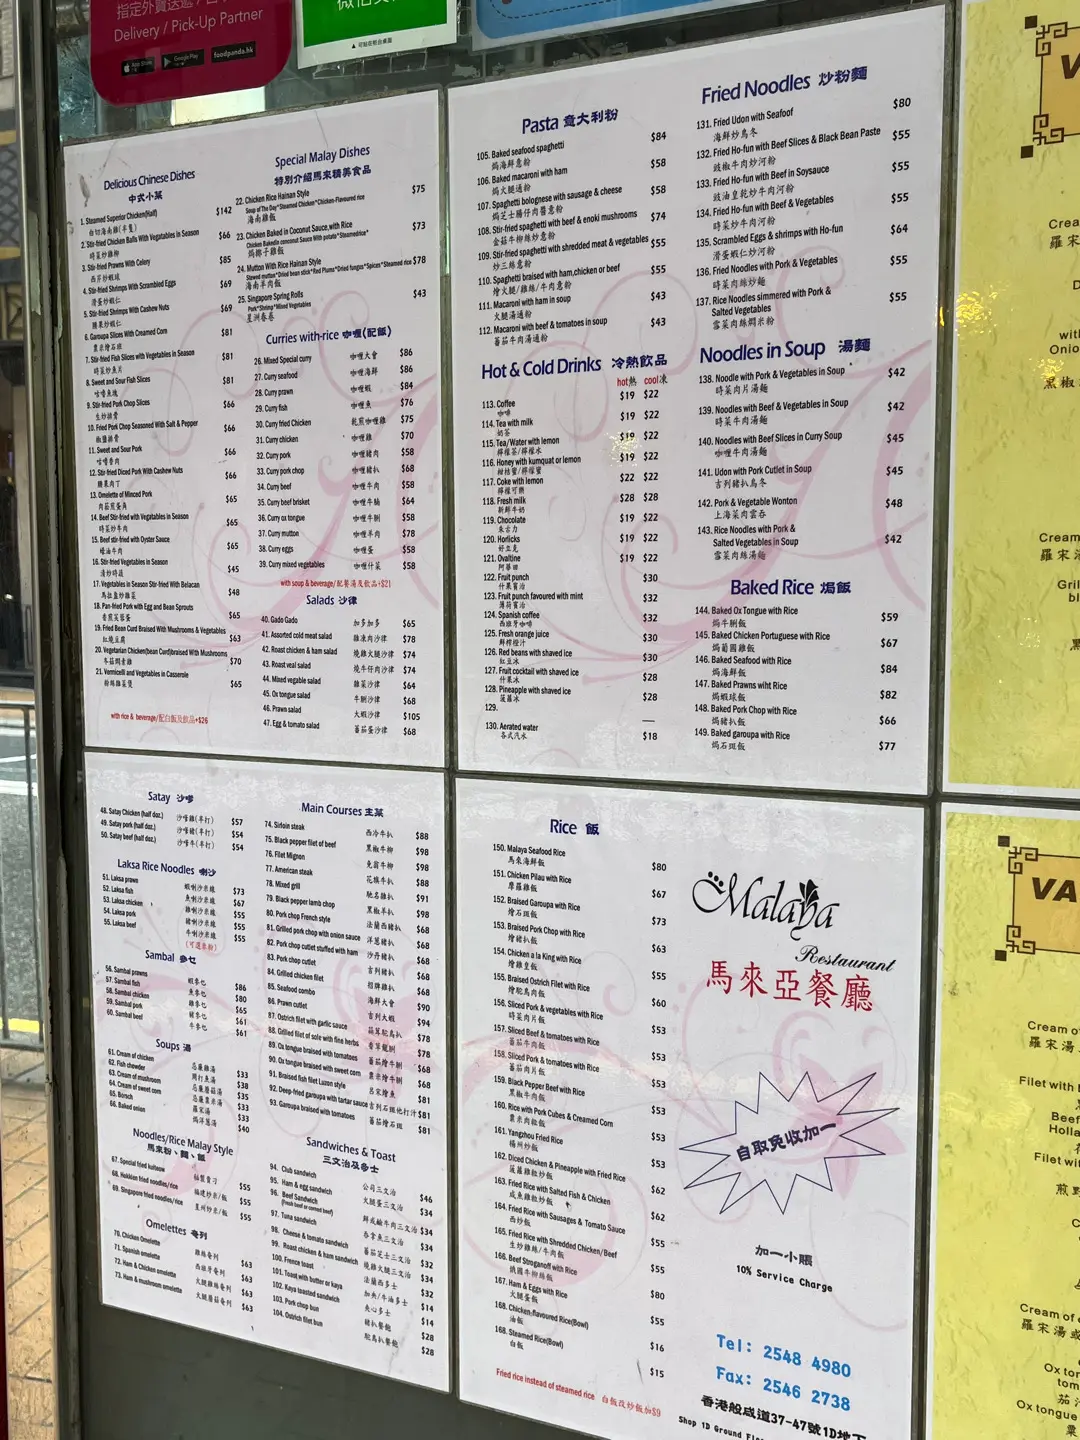 指定外賣送遞 / 自
Delivery / Pick-Up Partner
App Store
Google Play
foodpanda.hk
Delicious Chinese Dishes
中式小菜
1. Steamed Superior Chicken(Half) $142
白切海南雞(半隻)
2. Stir-fried Chicken Balls With Vegetables in Season $66
時菜炒雞柳
3. Stir-fried Prawns With Celery $85
西芹炒蝦球
4. Stir-fried Shrimps With Scrambled Eggs $69
滑蛋炒蝦仁
5. Stir-fried Shrimps With Cashew Nuts $69
腰果炒蝦仁
6. Garoupa Slices With Creamed Corn $81
粟米燴石班
7. Stir-fried Fish Slices with Vegetables in Season $81
時菜炒魚片
8. Sweet and Sour Fish Slices $81
咕嚕魚塊
9. Stir-fried Pork Chop Slices $66
生炒排骨
10. Fried Pork Chop Seasoned With Salt & Pepper $66
椒鹽排骨
11. Sweet and Sour Pork $66
咕嚕香肉
12. Stir-fried Diced Pork With Cashew Nuts $66
腰果肉丁
13. Omelette of Minced Pork $65
肉茄煎蛋角
14. Beef Stir-fried with Vegatables in Season $65
時菜炒牛肉
15. Beef stir-fried with Oyster Sauce $65
蠔油牛肉
16. Stir-fried Vegetables in Season $45
清炒時蔬
17. Vegetables in Season Stir-fried With Belacan $48
馬拉盞炒雜菜
18. Pan-fried Pork with Egg and Bean Sprouts $65
香煎芙蓉蛋
19. Fried Bean Curd Braised With Mushrooms & Vegetables $63
紅燒豆腐
20. Vegetarian Chicken(bean Curd)braised With Mushrooms $70
冬菇焖素雞
21. Vermicelli and Vegetables in Casserole $65
粉絲雜菜煲
with rice & beverage/配白飯及飲品+$26
Special Malay Dishes
特別介紹馬來精美食品
22. Chicken Rice Hainan Style $75
Soup of The Day*Steamed Chicken*Chicken-Flavoured rice
海南雞飯
23. Chicken Baked in Coconut Sauce,with Rice $73
Chicken Bakedin conconut Sauce With potato*Steamedrice*
焗椰子雞飯
24. Mutton With Rice Hainan Style
Stewed mutton*Dried bean stick*Red Plums*Dried fungus*Spices*Steamed rice $78
海南羊肉飯
25. Singapore Spring Rolls $43
Pork*Shrimp*Mixed Vegetables
星洲春卷
Curries with-rice 咖喱(配飯)
26. Mixed Special curry 咖喱大會 $86
27. Curry seafood 咖喱海鮮 $86
28. Curry prawn 咖喱蝦 $84
29. Curry fish 咖喱魚 $76
30. Curry fried Chicken 乾煎咖喱雞 $75
31. Curry chicken 咖喱雞 $70
32. Curry pork 咖喱豬肉 $58
33. Curry pork chop 咖喱豬扒 $68
34. Curry beef 咖喱牛肉 $58
35. Curry beef brisket 咖喱牛腩 $64
36. Curry ox tongue 咖喱牛脷 $58
37. Curry mutton 咖喱羊肉 $78
38. Curry eggs 咖喱蛋 $58
39. Curry mixed vegetables 咖喱什菜 $58
with soup & beverage/配餐湯及飲品+$21
Salads 沙律
40. Gado Gado 加多加多 $65
41. Assorted cold meat salad 雜凍肉沙律 $78
42. Roast chicken & ham salad 燒雞火腿沙律 $74
43. Roast veal salad 燒牛仔肉沙律 $74
44. Mixed vegable salad 雜菜沙律 $64
45. Ox tongue salad 牛脷沙律 $68
46. Prawn salad 大蝦沙律 $105
47. Egg & tomato salad 蕃茄蛋沙律 $68
Pasta 意大利粉
105. Baked seafood spaghetti $84
焗海鮮意粉
106. Baked macaroni with ham $58
焗火腿通粉
107. Spaghetti bolognese with sausage & cheese $58
焗芝士腸仔肉醬意粉
108. Stir-fried spaghetti with beef & enoki mushrooms $74
金菇牛柳絲炒意粉
109. Stir-fried spaghetti with shredded meat & vegetables $55
炒三絲意粉
110. Spaghetti braised with ham,chicken or beef $55
燴火腿/雞絲/牛肉意粉
111. Macaroni with ham in soup $43
火腿湯通粉
112. Macaroni with beef & tomatoes in soup $43
蕃茄牛肉湯通粉
Hot & Cold Drinks 冷熱飲品
hot熱 cool凍
113. Coffee $19 $22
咖啡
114. Tea with milk $19 $22
奶茶
115. Tea/Water with lemon $19 $22
檸檬茶/檸檬水
116. Honey with kumquat or lemon $19 $22
柑桔蜜/檸檬蜜
117. Coke with lemon $22 $22
檸檬可樂
118. Fresh milk $28 $28
新鮮牛奶
119. Chocolate $19 $22
朱古力
120. Horlicks $19 $22
好立克
121. Ovaltine $19 $22
阿華田
122. Fruit punch $30
什果賓治
123. Fruit punch favoured with mint $32
薄荷賓治
124. Spanish coffee $32
西班牙咖啡
125. Fresh orange juice $30
鮮榨橙汁
126. Red beans with shaved ice $30
紅豆冰
127. Fruit cocktail with shaved ice $28
什果冰
128. Pineapple with shaved ice $28
菠蘿冰
129. —
130. Aerated water $18
各式汽水
Fried Noodles 炒粉麵
131. Fried Udon with Seafoof $80
海鮮炒烏冬
132. Fried Ho-fun with Beef Slices & Black Bean Paste $55
豉椒牛肉炒河粉
133. Fried Ho-fun with Beef in Soysauce $55
豉油皇乾炒牛肉河粉
134. Fried Ho-fun with Beef & Vegetables $55
時菜炒牛肉河粉
135. Scrambled Eggs & shrimps with Ho-fun $64
滑蛋蝦仁炒河粉
136. Fried Noodles with Pork & Vegetables $55
時菜肉絲炒麵
137. Rice Noodles simmered with Pork & $55
Salted Vegetables
雪菜肉絲焗米粉
Noodles in Soup 湯麵
138. Noodle with Pork & Vegetables in Soup $42
時菜肉片湯麵
139. Noodles with Beef & Vegetables in Soup $42
時菜牛肉湯麵
140. Noodles with Beef Slices in Curry Soup $45
咖喱牛肉湯麵
141. Udon with Pork Cutlet in Soup $45
吉列豬扒烏冬
142. Pork & Vegetable Wonton $48
上海菜肉雲吞
143. Rice Noodles with Pork & $42
Salted Vegetables in Soup
雪菜肉絲湯麵
Baked Rice 焗飯
144. Baked Ox Tongue with Rice $59
焗牛脷飯
145. Baked Chicken Portuguese with Rice $67
焗葡國雞飯
146. Baked Seafood with Rice $84
焗海鮮飯
147. Baked Prawns wiht Rice $82
焗蝦球飯
148. Baked Pork Chop with Rice $66
焗豬扒飯
149. Baked garoupa with Rice $77
焗石斑飯
Satay 沙嗲
48. Satay Chicken (half doz.) 沙嗲雞(半打) $57
49. Satay pork (half doz.) 沙嗲豬(半打) $54
50. Satay beef (half doz.) 沙嗲牛(半打) $54
Laksa Rice Noodles 喇沙
51. Laksa prawn 蝦喇沙米線 $73
52. Laksa fish 魚喇沙米線 $67
53. Laksa chicken 雞喇沙米線 $55
54. Laksa pork 豬喇沙米線 $55
55. Laksa beef 牛喇沙米線 $55
(可選米粉)
Sambal 參乜
56. Sambal prawns 蝦參乜 $86
57. Sambal fish 魚參乜 $80
58. Sambal chicken 雞參乜 $65
59. Sambal pork 豬參乜 $61
60. Sambal beef 牛參乜 $61
Soups 湯
61. Cream of chicken 忌廉雞湯 $33
62. Fish chowder 周打魚湯 $38
63. Cream of mushroom 忌廉蘑菇湯 $35
64. Cream of sweet corn 忌廉粟米湯 $33
65. Borsch 羅宋湯 $33
66. Baked onion 焗洋蔥湯 $40
Noodles/Rice Malay Style
馬來粉、麵、飯
67. Special fried kuiteaw $55
68. Hokkien fried noodles/rice 福建炒米/飯 $55
69. Singapore fried noodles/rice 星州炒米/飯 $55
Omelettes 奄列
70. Chicken Omelette 雞絲奄列 $63
71. Spanish omelette 西班牙奄列 $63
72. Ham & Chicken omelette 火腿雞絲奄列 $63
73. Ham & mushroom omelette 火腿蘑菇奄列 $63
Main Courses 主菜
74. Sirloin steak 西冷牛扒 $88
75. Black pepper filet of beef 黑椒牛柳 $98
76. Filet Mignon 免翁牛柳 $98
77. American steak 花旗牛扒 $88
78. Mixed grill 馳名雜扒 $91
79. Black pepper lamb chop 黑椒羊扒 $98
80. Pork chop French style 法蘭西豬扒 $68
81. Grilled pork chop with onion sauce 洋蔥豬扒 $68
82. Pork chop cutlet stuffed with ham 沙丹豬扒 $68
83. Pork chop cutlet 吉列豬扒 $68
84. Grilled chicken filet 招牌雞扒 $68
85. Seafood combo 海鮮大會 $90
86. Prawn cutlet 吉列大蝦 $94
87. Ostrich filet with garlic sauce 蒜茸鴕鳥扒 $78
88. Grilled filet of sole with fine herbs 香草龍脷 $78
89. Ox tongue braised with tomatoes 蕃茄燴牛脷 $68
90. Ox tongue braised with sweet corn 粟米燴牛脷 $68
91. Braised fish filet Luzon style 呂宋燴魚 $81
92. Deep-fried garoupa with tartar sauce 吉列石斑他打汁 $81
93. Garoupa braised with tomatoes 蕃茄燴石斑 $81
Sandwiches & Toast
三文治及多士
94. Club sandwich 公司三文治 $46
95. Ham & egg sandwich 火腿蛋三文治 $34
96. Beef Sandwich 鮮或鹹牛肉三文治 $34
(Fresh beef or corned beef)
97. Tuna sandwich 吞拿魚三文治 $34
98. Cheese & tomato sandwich 蕃茄芝士三文治 $32
99. Roast chicken & ham sandwich 燒雞火腿三文治 $34
100. Frence toast 法蘭西多士 $32
101. Toast with butter or kaya 加央/牛油多士 $14
102. Kaya toasted sandwich 夾心多士 $14
103. Pork chop bun 豬扒餐飽 $28
104. Ostrich filet bun 鴕鳥扒餐飽 $28
Rice 飯
150. Malaya Seafood Rice $80
馬來海鮮飯
151. Chicken Pilau with Rice $67
摩羅雞飯
152. Braised Garoupa with Rice $73
燴石斑飯
153. Braised Pork Chop with Rice $63
燴豬扒飯
154. Chicken a la King with Rice $55
燴雞皇飯
155. Braised Ostrich Filet with Rice $60
燴鴕鳥肉飯
156. Sliced Pork & vegetables with Rice $53
時菜肉片飯
157. Sliced Beef & tomatoes with Rice $53
蕃茄牛肉飯
158. Sliced Pork & tomatoes with Rice $53
蕃茄肉片飯
159. Black Pepper Beef with Rice $53
黑椒牛肉飯
160. Rice with Pork Cubes & Creamed Corn $53
粟米肉粒飯
161. Yangzhou Fried Rice $53
楊州炒飯
162. Diced Chicken & Pineapple with Fried Rice $62
菠蘿雞粒炒飯
163. Fried Rice with Salted Fish & Chicken $62
咸魚雞粒炒飯
164. Fried Rice with Sausages & Tomato Sauce $55
西炒飯
165. Fried Rice with Shredded Chicken/Beef $55
生炒雞絲/牛肉飯
166. Beef Stroganoff with Rice $80
俄國牛柳絲飯
167. Ham & Eggs with Rice $55
火腿蛋飯
168. Chicken-flavoured Rice(Bowl) $16
油飯
168. Steamed Rice(Bowl) $15
白飯
Fried rice instead of steamed rice 白飯改炒飯加$9
Malaya
Restaurant
馬來亞餐廳
自取免收加一
加一小賬
10% Service Charge
Tel: 2548 4980
Fax: 2546 2738
香港般咸道37-47號1D地下
Shop 1D Ground Floor
VA
Crea
羅宋
D
with
Onio
黑椒
Cream
羅宋湯
Gril
bl
VA
Cream o
羅宋湯
Filet with
Beef
Holla
Filet wi
煎
Cream of
羅宋湯或
Ox ton
tom
茄汁
Ox tongue
粟